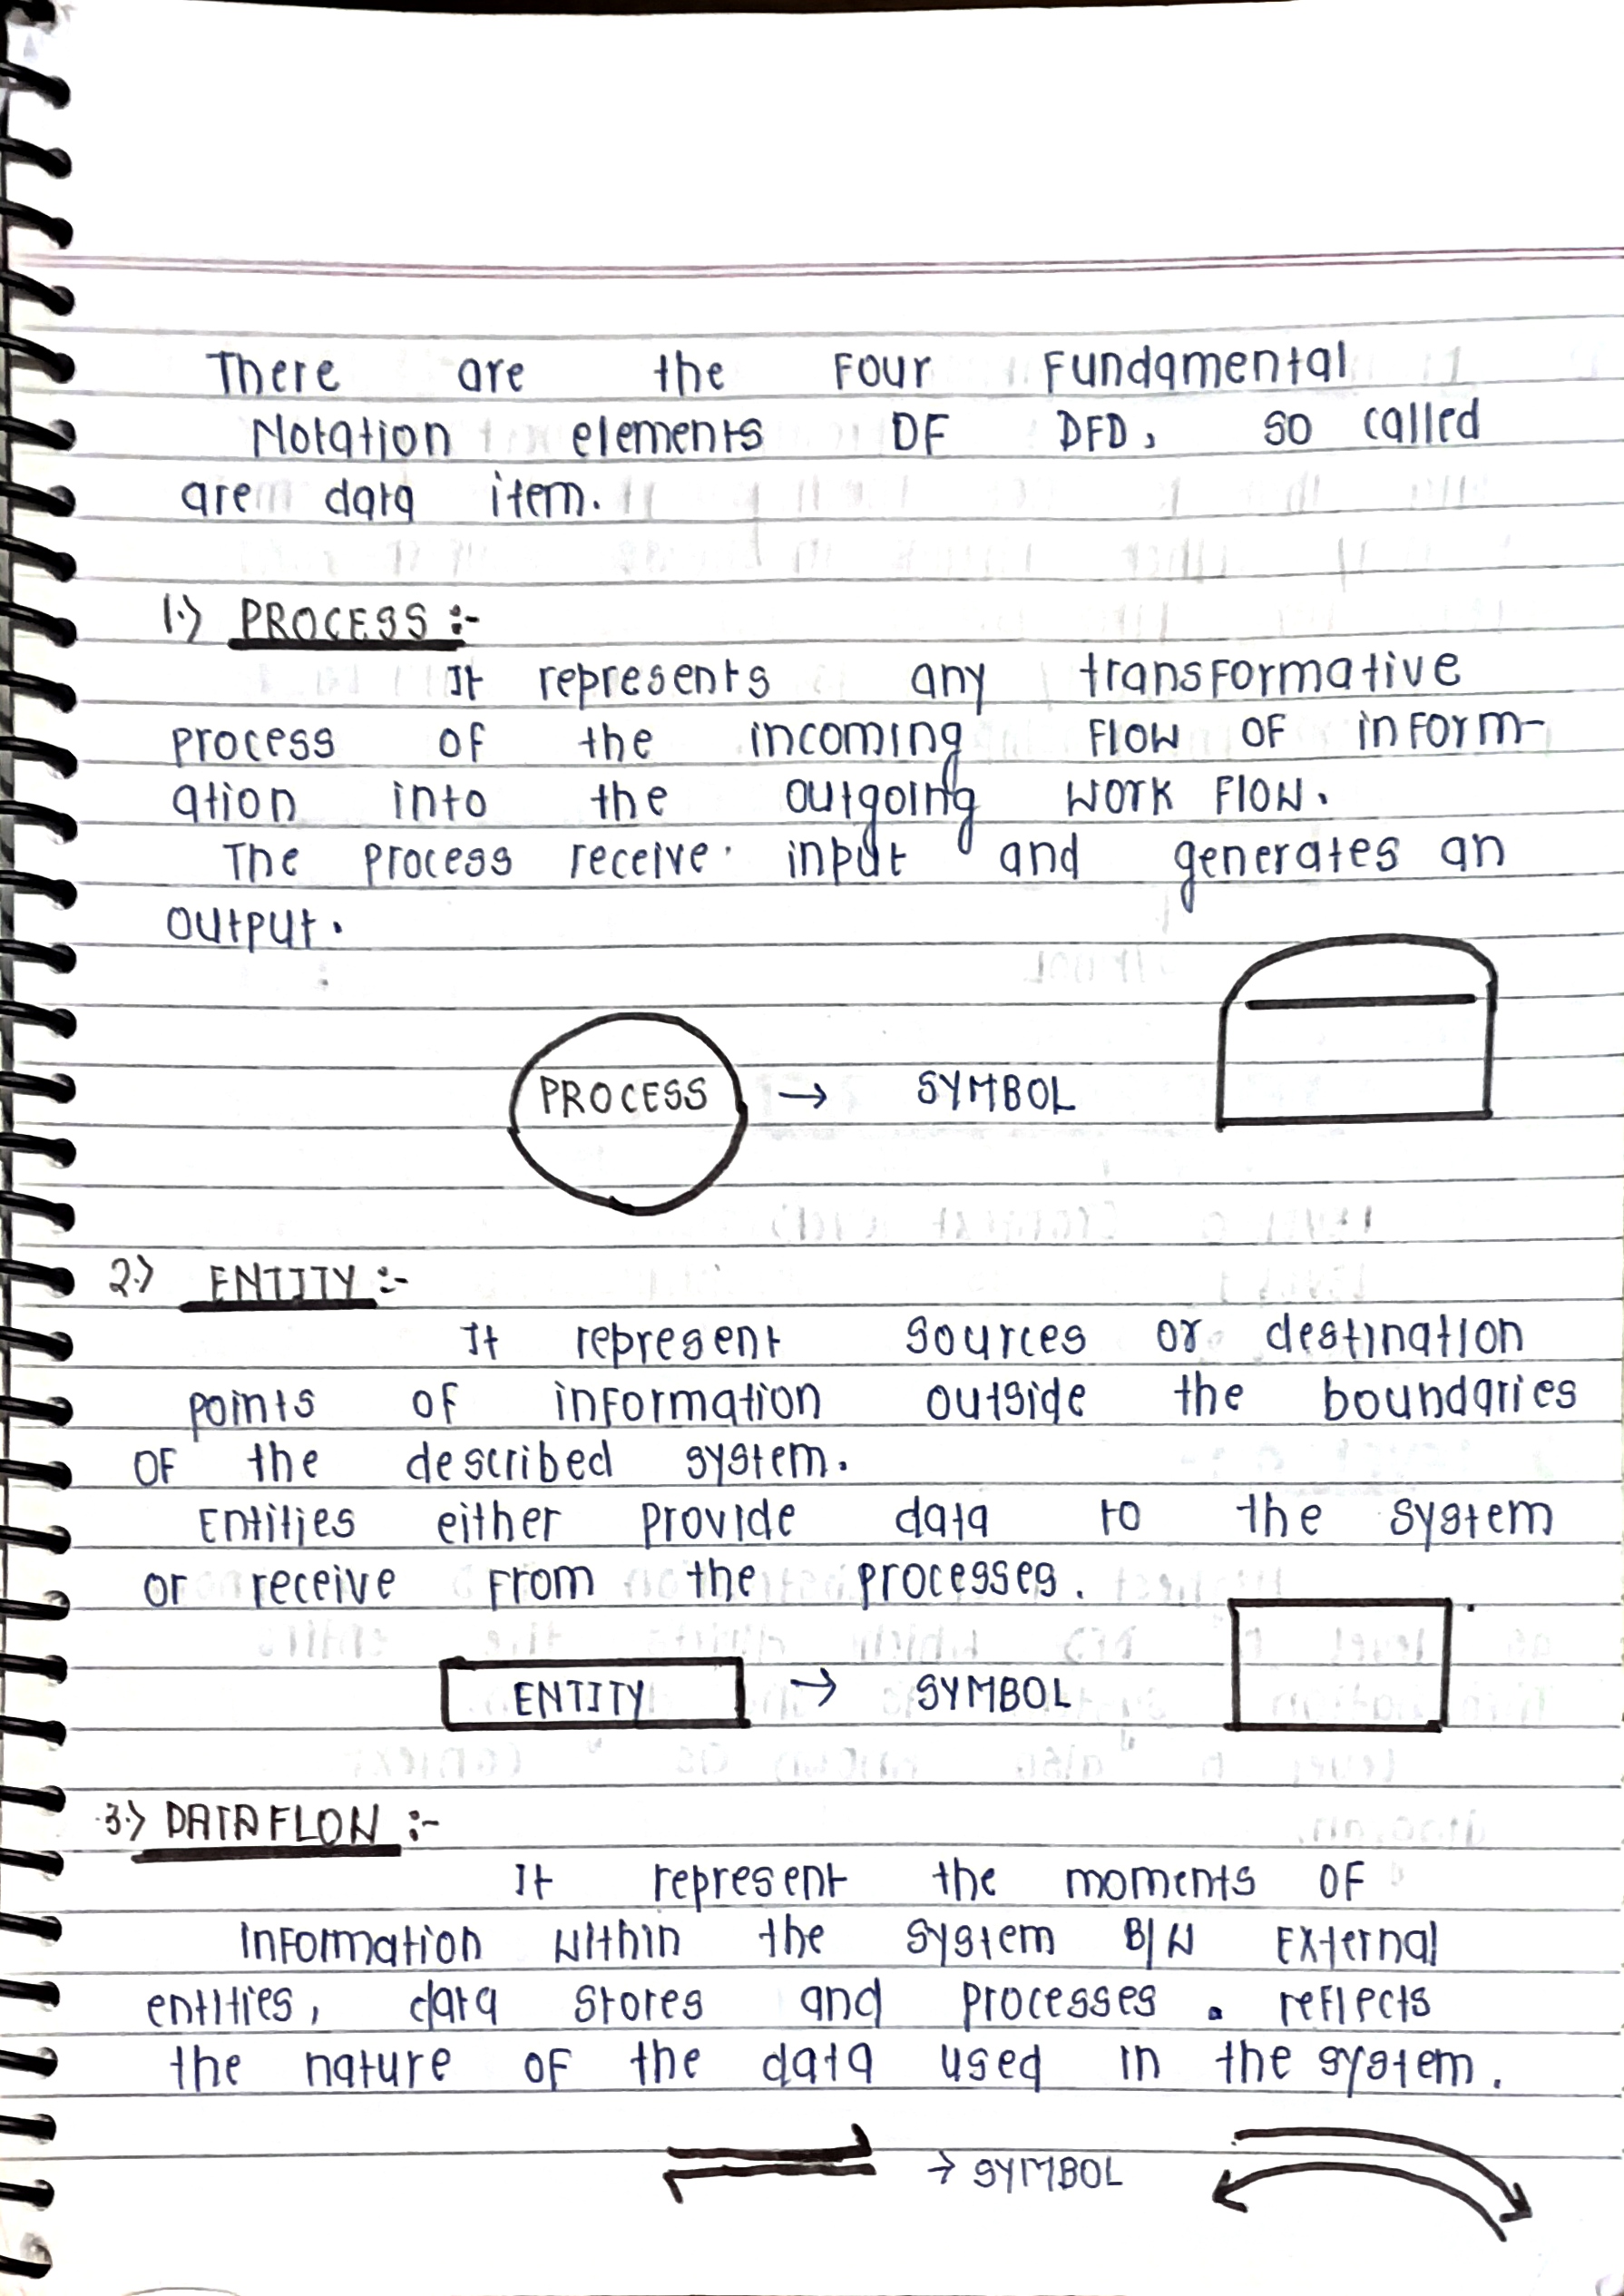 There are the Four Fundamental
Notation elements OF DFD, so called
are data item.
1.) PROCESS :-
It represents any transformative
process of the incoming flow of inform-
ation into the outgoing work flow.
The process receive input and generates an
output.
PROCESS → SYMBOL
2.) ENTITY :-
It represent sources or destination
points of information outside the boundaries
OF the described system.
Entities either provide data to the system
or receive from the processes.
ENTITY → SYMBOL
3.) DATA FLOW :-
It represent the moments of
information within the system B/W External
entities, data stores and processes. reflects
the nature of the data used in the system.
→ SYMBOL